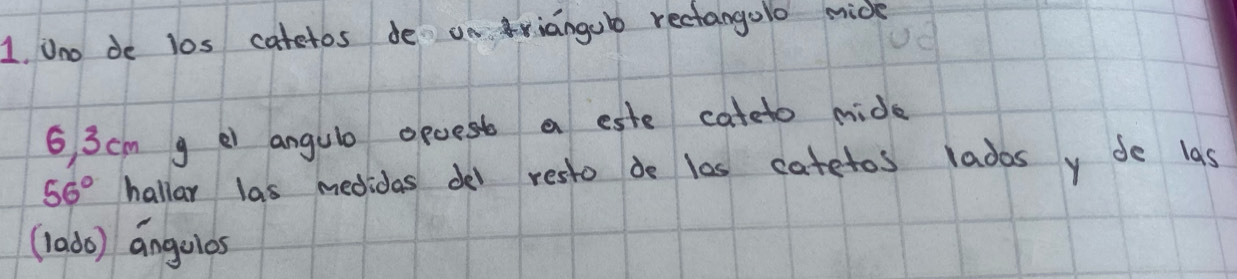 1. Uno de los catetos de un triángulo rectangulo mide
6,3cm y el angulo opuesto a este cateto mide
56° hallar las medidas del resto de los catetos lados y de las
(lado) ángulos